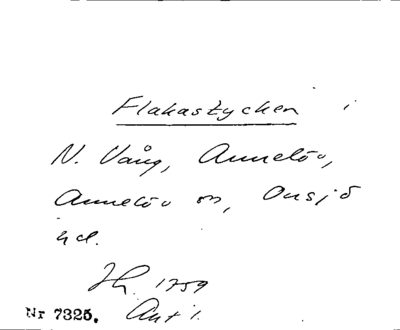 Flakastycken i
N. Vång, Annelöv,
Annelöv sn, Onsjö
hd.
Ih. 1759
Akt 1.
Nr 7325.